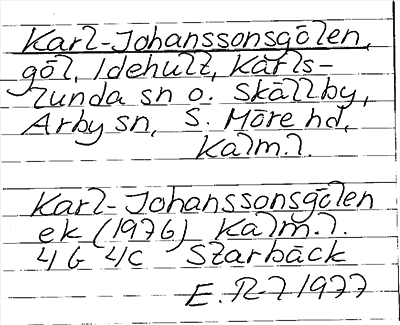 Karl-Johanssonsgölen,
göl, Idehult, Karls-
lunda sn o. Skällby,
Arby sn, S. Möre hd,
Kalm.l.
Karl-Johanssonsgölen
ek (1976) Kalm.l.
4G 4c Starbäck
E. R-7 1977